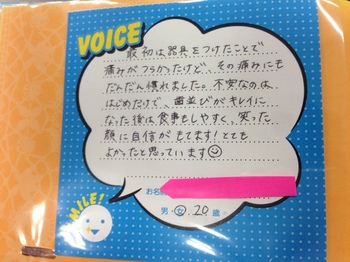 VOICE
最初は器具をつけたことで
痛みがつらかったけど、その痛みにも
だんだん慣れました。不安なのは、
はじめだけで、歯並びがキレイに
なった後は食事もしやすく、笑った
顔に自信がもてます!とても
よかったと思っています
お名前
男・女 20歳
SMILE!